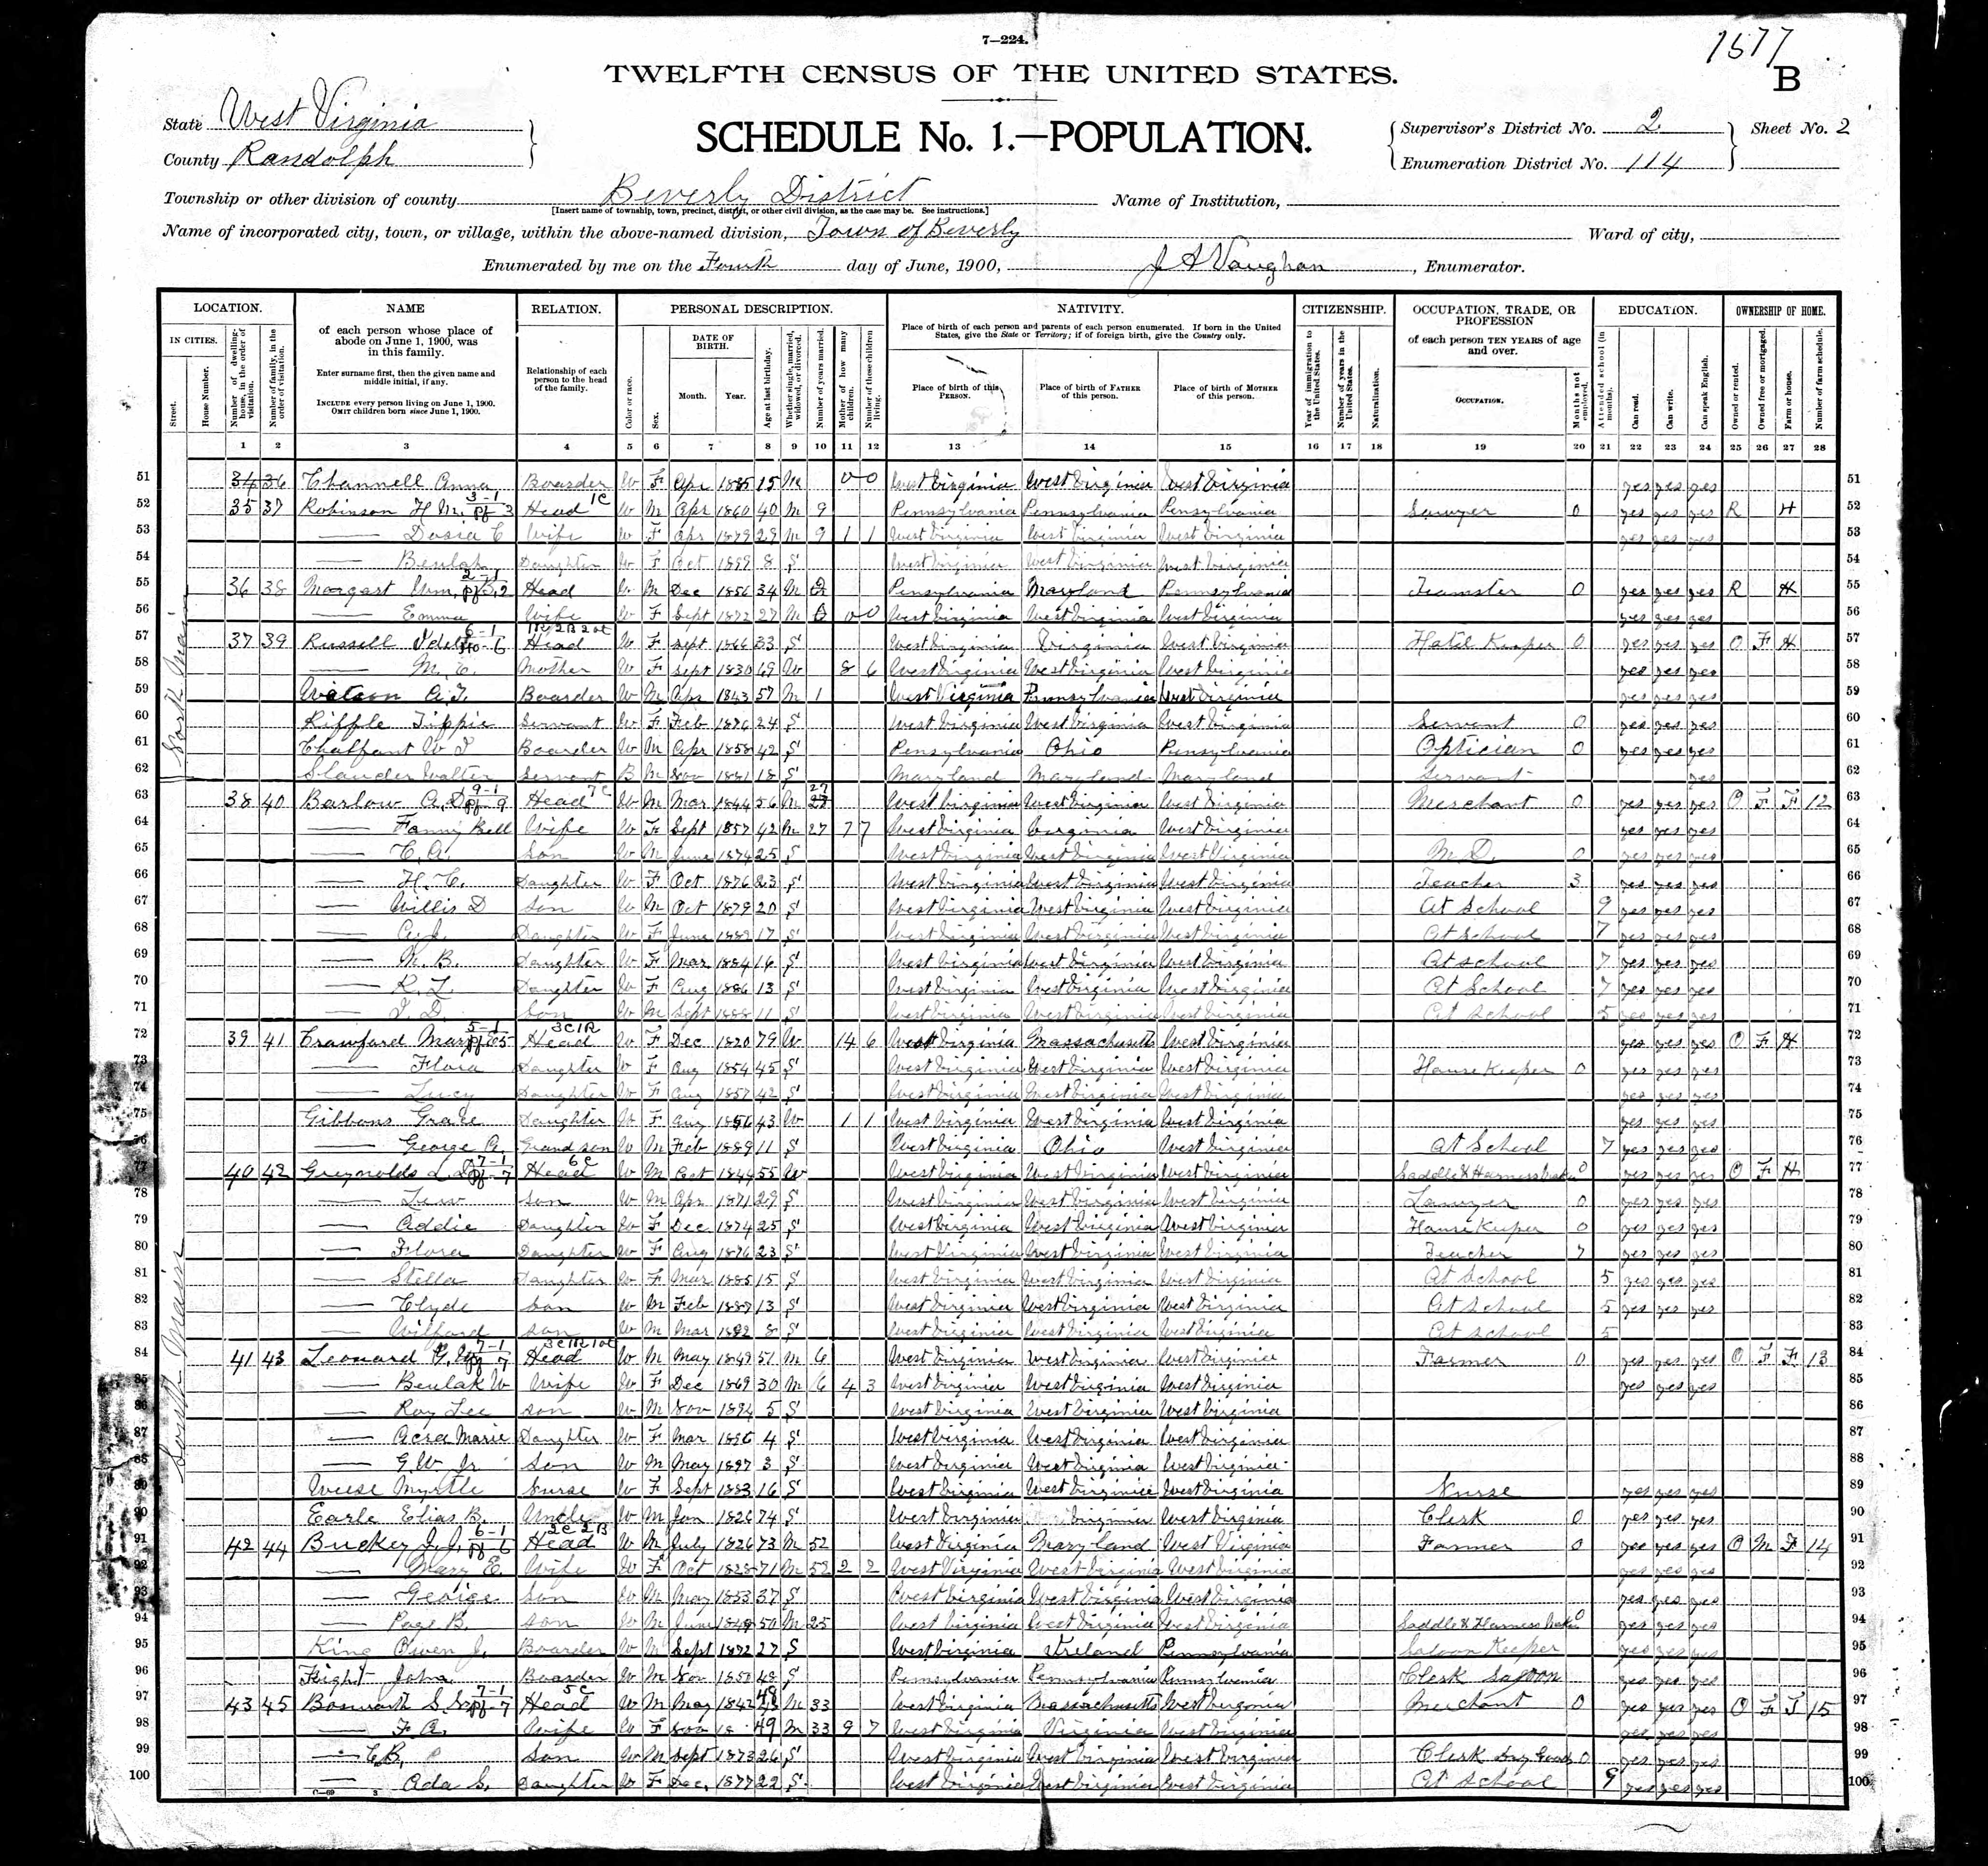 7—224.
1577
B
TWELFTH CENSUS OF THE UNITED STATES.
State West Virginia
County Randolph
SCHEDULE No. 1.—POPULATION.
Supervisor's District No. 2
Enumeration District No. 114
Sheet No. 2
Township or other division of county Beverly District Name of Institution,
[Insert name of township, town, precinct, district, or other civil division, as the case may be. See instructions.]
Name of incorporated city, town, or village, within the above-named division, Town of Beverly Ward of city,
Enumerated by me on the Fourth day of June, 1900, J A Vaughan, Enumerator.
LOCATION. NAME RELATION. PERSONAL DESCRIPTION. NATIVITY. CITIZENSHIP. OCCUPATION, TRADE, OR PROFESSION EDUCATION. OWNERSHIP OF HOME.
IN CITIES.
Street.
House Number.
Number of dwelling-house, in the order of visitation.
Number of family, in the order of visitation.
of each person whose place of abode on June 1, 1900, was in this family.
Enter surname first, then the given name and middle initial, if any.
INCLUDE every person living on June 1, 1900.
OMIT children born since June 1, 1900.
Relationship of each person to the head of the family.
Color or race.
Sex.
DATE OF BIRTH.
Month. Year.
Age at last birthday.
Whether single, married, widowed, or divorced.
Number of years married.
Mother of how many children.
Number of these children living.
Place of birth of each person and parents of each person enumerated. If born in the United States, give the State or Territory; if of foreign birth, give the Country only.
Place of birth of this PERSON.
Place of birth of FATHER of this person.
Place of birth of MOTHER of this person.
Year of immigration to the United States.
Number of years in the United States.
Naturalization.
of each person TEN YEARS of age and over.
OCCUPATION.
Months not employed.
Attended school (in months).
Can read.
Can write.
Can speak English.
Owned or rented.
Owned free or mortgaged.
Farm or house.
Number of farm schedule.
1 2 3 4 5 6 7 8 9 10 11 12 13 14 15 16 17 18 19 20 21 22 23 24 25 26 27 28
North Main
South Main
51 34 36 Channell Anna Boarder W F Apr 1885 15 M 0 0 West Virginia West Virginia West Virginia yes yes yes 51
52 35 37 Robinson H M. Head W M Apr 1860 40 M 9 Pennsylvania Pennsylvania Pensylvania Sawyer 0 yes yes yes R H 52
53 Dasie C Wife W F Apr 1879 29 M 9 1 1 West Virginia West Virginia West Virginia yes yes yes 53
54 Beulah Daughter W F Oct 8 S West Virginia West Virginia West Virginia 54
55 36 38 Margart Wm. Head W M Dec 1856 34 M Pensylvania Maryland Pennsylvania Teamster 0 yes yes yes R H 55
56 Emma Wife W F Sept 1872 27 M 0 0 West Virginia West Virginia West Virginia yes yes yes 56
57 37 39 Russell Head W F Sept 1866 33 S West Virginia Virginia West Virginia Hotel Keeper 0 yes yes yes O F H 57
58 M. C. Mother W F Sept 1830 69 W 8 6 West Virginia West Virginia West Virginia yes yes yes 58
59 Watson A. T. Boarder W M Apr 1843 57 M 1 West Virginia Pennsylvania West Virginia yes yes yes 59
60 Riffle Tippie Servant W F Feb 1876 24 S West Virginia West Virginia West Virginia Servant 0 yes yes yes 60
61 Chalfant W T Boarder W M Apr 1858 42 S Pensylvania Ohio Pensylvania Optician 0 yes yes yes 61
62 Walter Servant B M Nov 1881 18 S Maryland Maryland Maryland Servant yes 62
63 38 40 Barlow A. D. Head W M Mar 1844 56 M 27 West Virginia West Virginia West Virginia Merchant 0 yes yes yes O F F 12 63
64 Fanny Bell Wife W F Sept 1857 42 M 27 7 7 West Virginia Virginia West Virginia yes yes yes 64
65 C. A. Son W M June 1874 25 S West Virginia West Virginia West Virginia M. D. 0 yes yes yes 65
66 H. C. Daughter W F Oct 1876 23 S West Virginia West Virginia West Virginia Teacher 3 yes yes yes 66
67 Willis D Son W M Oct 1879 20 S West Virginia West Virginia West Virginia At School 9 yes yes yes 67
68 Daughter W F June 17 S West Virginia West Virginia West Virginia At School 7 yes yes yes 68
69 M. B. Daughter W F Mar 1884 16 S West Virginia West Virginia West Virginia At school 7 yes yes yes 69
70 R. L. Daughter W F Aug 1886 13 S West Virginia West Virginia West Virginia At School 7 yes yes yes 70
71 Son W M Sept 1888 11 S West Virginia West Virginia West Virginia At School 5 yes yes yes 71
72 39 41 Crawford Mary Head W F Dec 1820 79 W 14 6 West Virginia Massachusetts West Virginia yes yes yes O F H 72
73 Flora Daughter W F Aug 1854 45 S West Virginia West Virginia West Virginia House Keeper 0 yes yes yes 73
74 Lucy Daughter W F Aug 1857 42 S West Virginia West Virginia West Virginia yes yes yes 74
75 Gibbons Grace Daughter W F Aug 1856 43 W 1 1 West Virginia West Virginia West Virginia yes yes yes 75
76 George A. Grandson W M Feb 1889 11 S West Virginia Ohio West Virginia At School 7 yes yes yes 76
77 40 42 Greynolds L D Head W M Oct 1844 55 W West Virginia West Virginia West Virginia Saddle & Harness Maker 0 yes yes yes O F H 77
78 Lew Son W M Apr 1871 29 S West Virginia West Virginia West Virginia Lawyer 0 yes yes yes 78
79 Addie Daughter W F Dec 1874 25 S West Virginia West Virginia West Virginia House Keeper 0 yes yes yes 79
80 Flora Daughter W F Aug 1876 23 S West Virginia West Virginia West Virginia Teacher 7 yes yes yes 80
81 Stella Daughter W F Mar 1885 15 S West Virginia West Virginia West Virginia At School 5 yes yes yes 81
82 Clyde Son W M Feb 1887 13 S West Virginia West Virginia West Virginia At School 5 yes yes yes 82
83 Wilford Son W M Mar 1892 8 S West Virginia West Virginia West Virginia At school 5 83
84 41 43 Leonard G. W. Head W M May 1849 51 M 6 West Virginia West Virginia West Virginia Farmer 0 yes yes yes O F F 13 84
85 Beulah W Wife W F Dec 1869 30 M 6 4 3 West Virginia West Virginia West Virginia yes yes yes 85
86 Roy Lee Son W M Nov 1894 5 S West Virginia West Virginia West Virginia 86
87 Acra Marie Daughter W F Mar 1896 4 S West Virginia West Virginia West Virginia 87
88 G. W Jr Son W M May 1897 3 S West Virginia West Virginia West Virginia 88
89 Weese Myrtle Nurse W F Sept 1883 16 S West Virginia West Virginia West Virginia Nurse yes yes yes 89
90 Earle Elias B. Uncle W M Jan 1826 74 S West Virginia Virginia West Virginia Clerk 0 yes yes yes 90
91 42 44 Buckey J. J. Head W M July 1826 73 M 52 West Virginia Maryland West Virginia Farmer 0 yes yes yes O M F 14 91
92 Mary E. Wife W F Oct 1828 71 M 52 2 2 West Virginia West Virginia West Virginia yes yes yes 92
93 George Son W M May 1853 37 S West Virginia West Virginia West Virginia yes yes yes 93
94 Page B. Son W M June 1849 50 M 25 West Virginia West Virginia West Virginia Saddle & Harness Maker 0 yes yes yes 94
95 King Owen J. Boarder W M Sept 1872 27 S West Virginia Ireland Pennsylvania Saloon Keeper yes yes yes 95
96 John Boarder W M Nov 48 S Pennsylvania Pennsylvania Pennsylvania Clerk Saloon yes yes yes 96
97 43 45 Bosworth S. Head W M May 1842 M 33 West Virginia Massachusetts West Virginia Merchant 0 yes yes yes O F F 15 97
98 F A. Wife W F Nov 49 M 33 9 7 West Virginia Virginia West Virginia yes yes yes 98
99 C. B. Son W M Sept 1873 26 S West Virginia West Virginia West Virginia Clerk Dry Goods 0 yes yes yes 99
100 Ada S. Daughter W F Dec. 1877 22 S West Virginia West Virginia West Virginia At School 9 yes yes yes 100